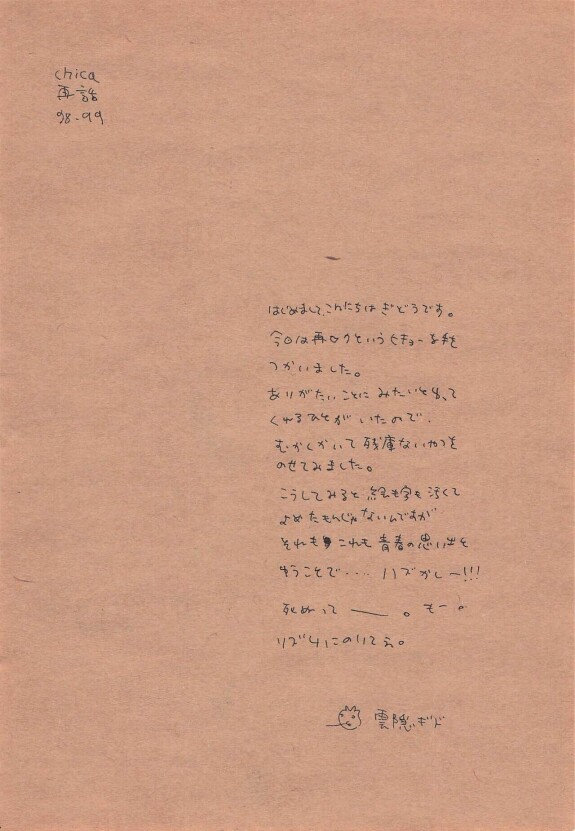 chica
再録
98-99
はじめまして、こんにちは ぎどうです。
今日は再ロクというヒキョーな手を
つかいました。
ありがたいことに みたいと思って
くれるひとが いたので、
むかしかいて 残庫ないやつを
のせてみました。
こうしてみると 絵も字も汚くて
よめたもんじゃないんですが
それも これも 青春の思い出と
言うことで・・・・ ハズかしー!!!
死ぬって ―― 。 もー。
リズムにのりてぇ。
雲隠ギド